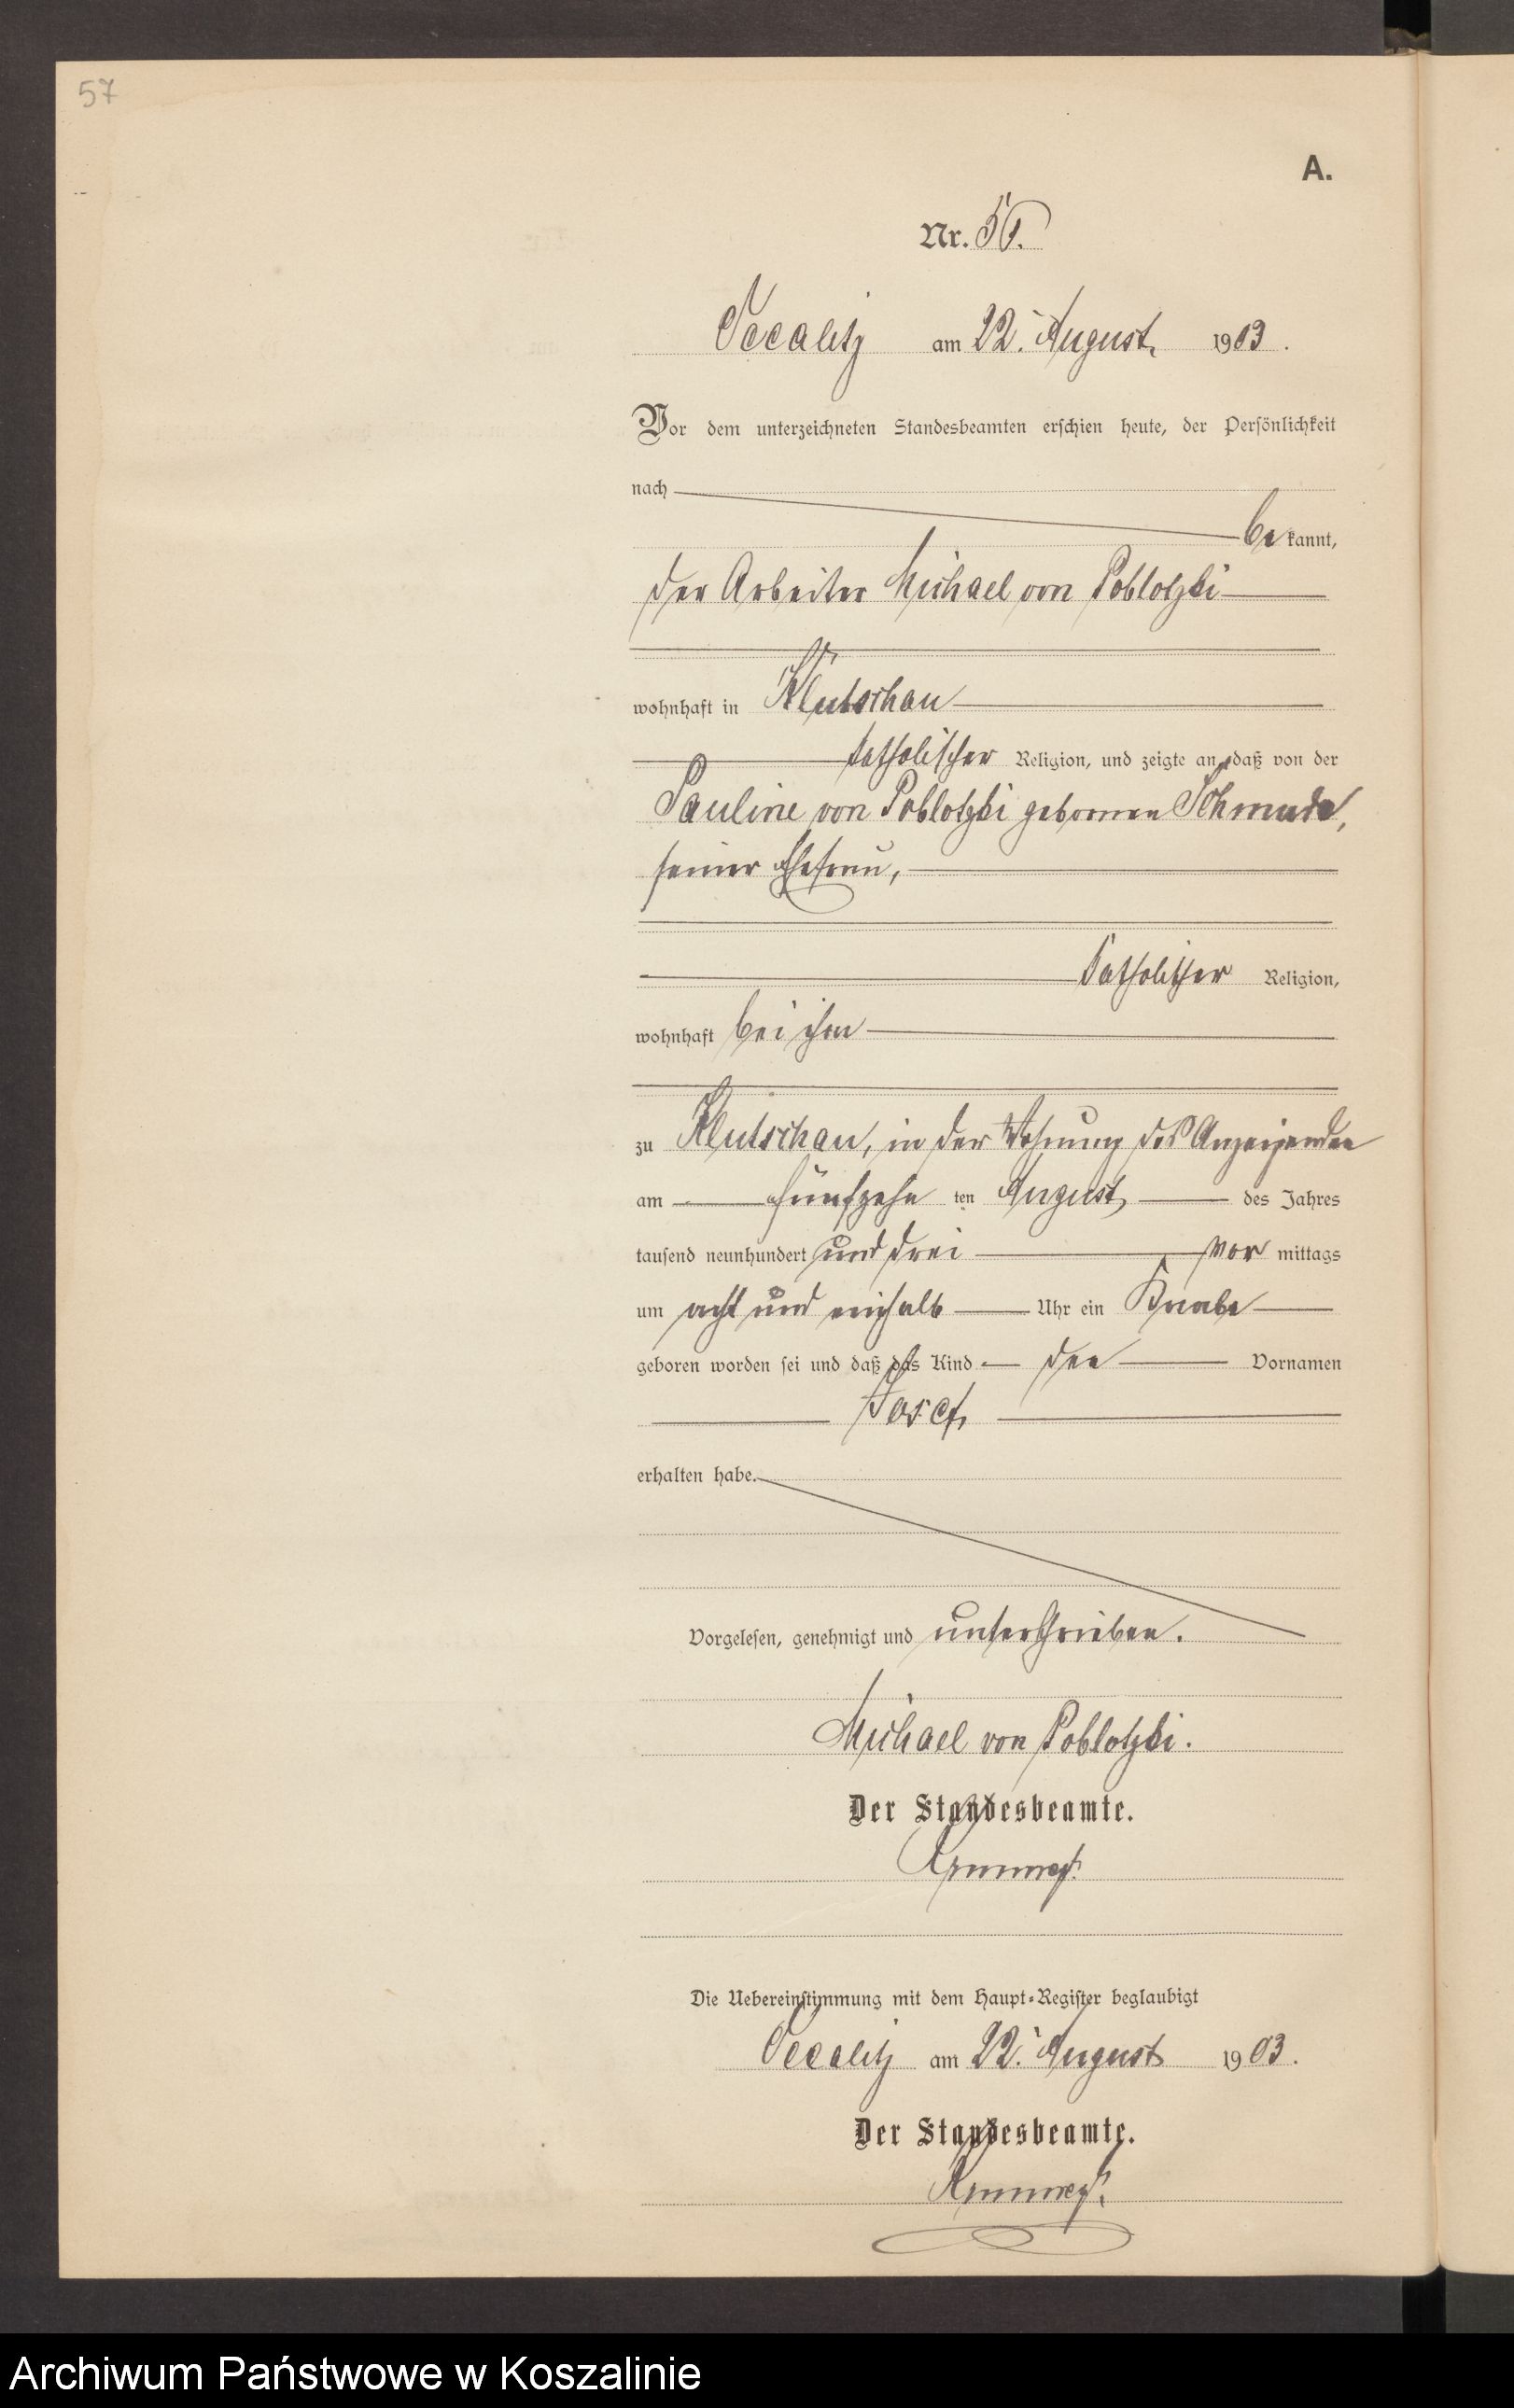 57
A.
Nr. 50.
Occalitz am 22. August 1903.
Vor dem unterzeichneten Standesbeamten erschien heute, der Persönlichkeit
nach
bekannt,
der Arbeiter Michael von Poblotzki
wohnhaft in Klutschau
katholischer Religion, und zeigte an, daß von der
Pauline von Poblotzki gebornen Schmude,
seiner Ehefrau,
katholischer Religion,
wohnhaft bei ihm
zu Klutschau, in der Wohnung des Anzeigenden
am fünfzehn ten August des Jahres
tausend neunhundert und drei vor mittags
um acht und einhalb Uhr ein Knabe
geboren worden sei und daß das Kind den Vornamen
Josef
erhalten habe.
Vorgelesen, genehmigt und unterschrieben.
Michael von Poblotzki.
Der Standesbeamte.
Die Uebereinstimmung mit dem Haupt-Register beglaubigt
Occalitz am 22. August 1903.
Der Standesbeamte.
Archiwum Państwowe w Koszalinie